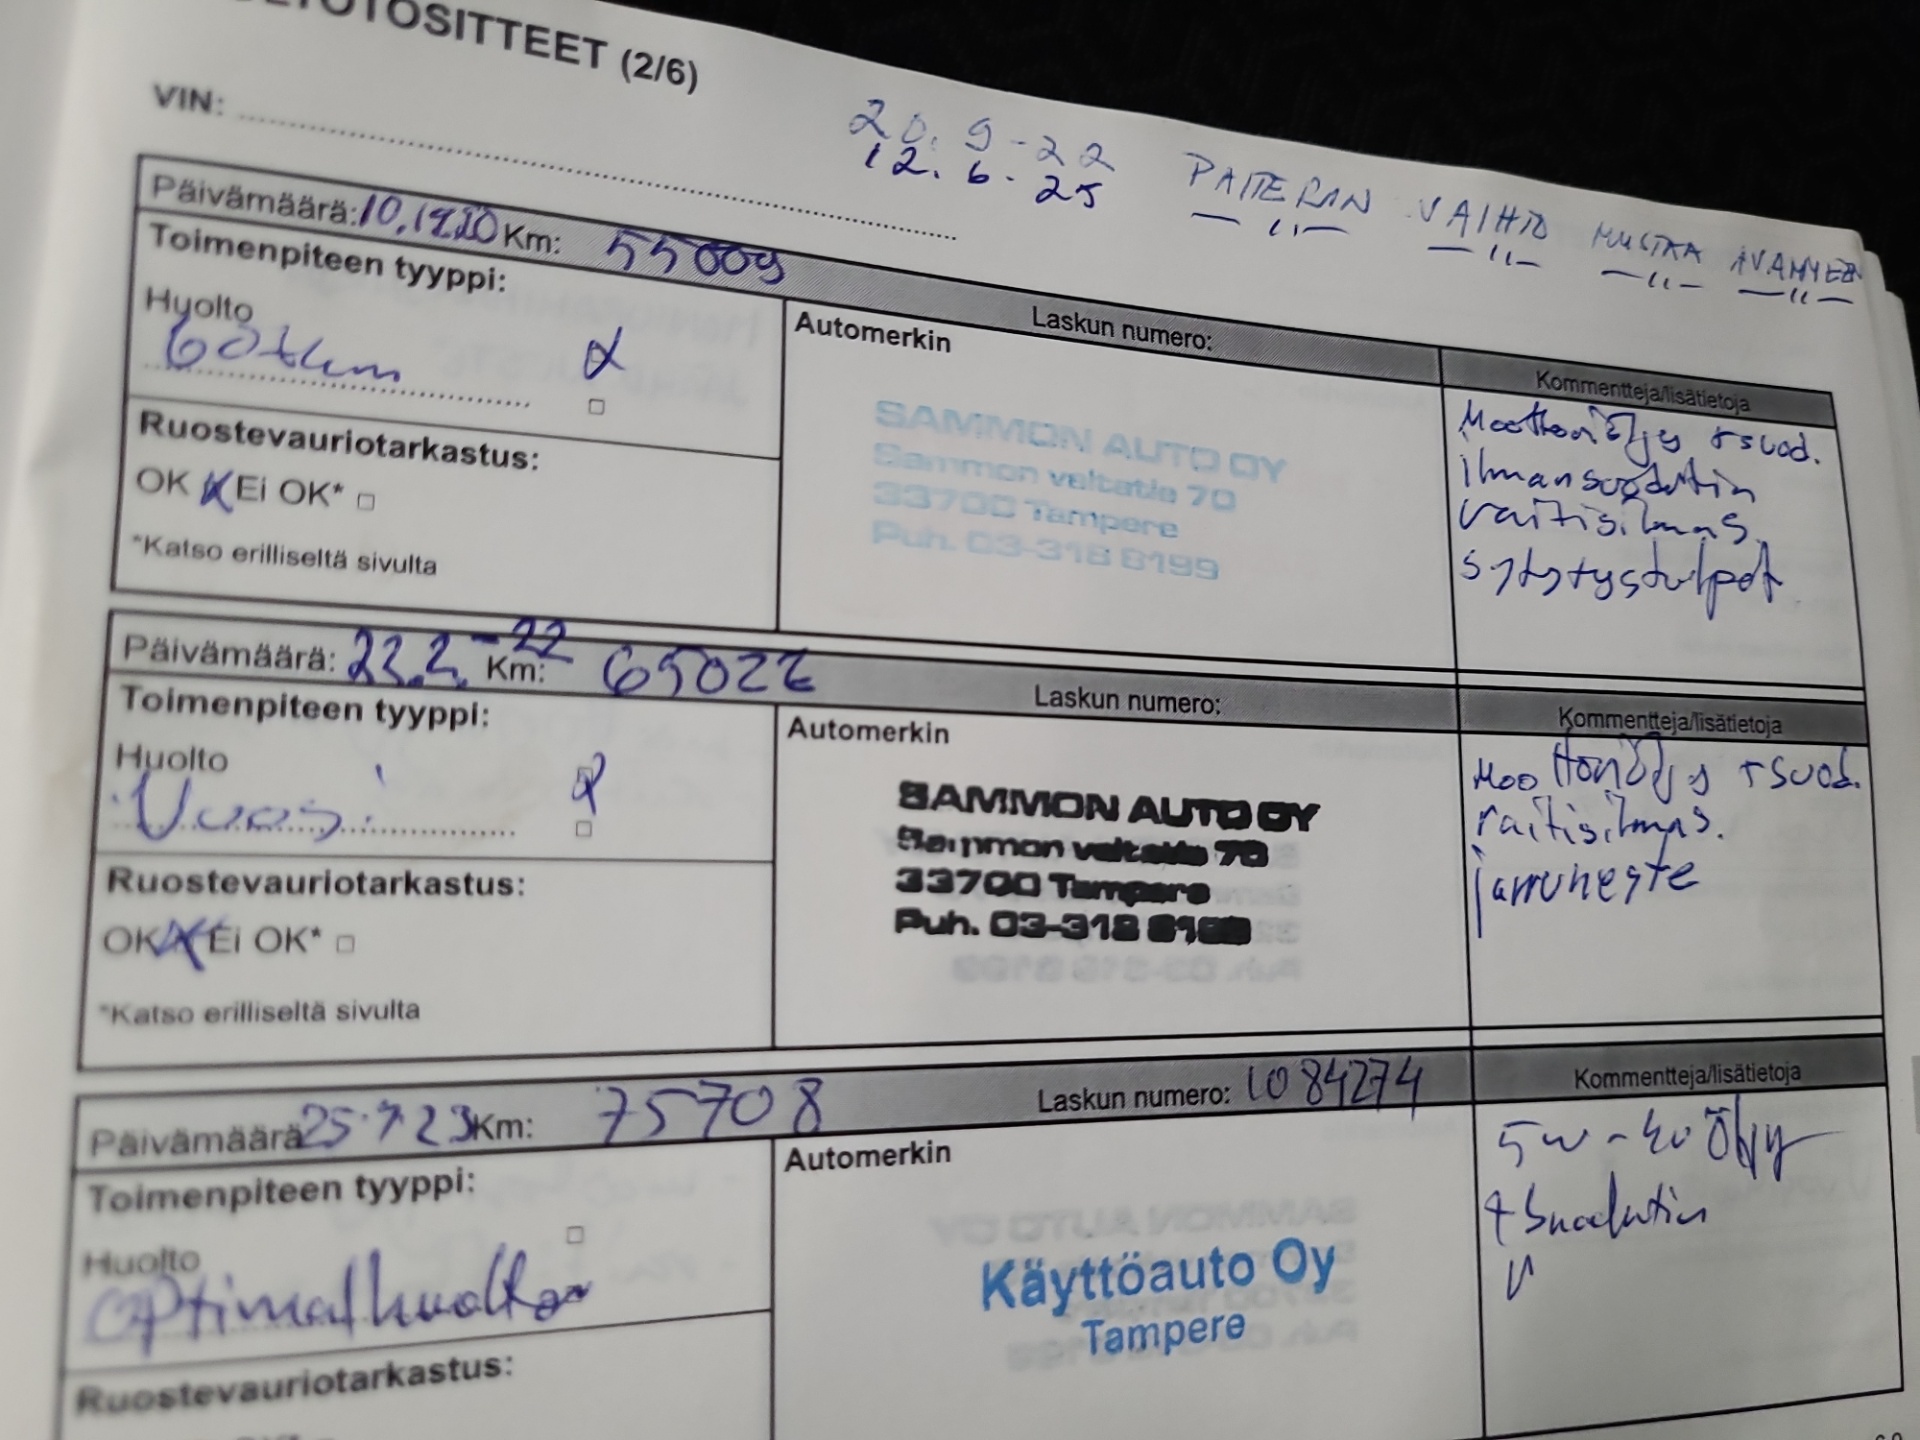 TOSITTEET (2/6)
VIN:
20.9-22 PATTERAN VAIHTO MUSTAA AVAIMEEN
12.6-25 —"— —"— —"— —"—
Päivämäärä: Km: 55009
Laskun numero:
Kommentteja/lisätietoja
Toimenpiteen tyyppi:
Huolto
60tkm
Automerkin
SAMMON AUTO OY
Sammon valtatie 70
33700 Tampere
Puh. 03-318 8199
Moottoriöljy +suod.
ilmansuodatin
raitisilmas.
sytytystulpat
Ruostevauriotarkastus:
OK Ei OK*
*Katso erilliseltä sivulta
Päivämäärä: 22.2.-22 Km: 65022
Laskun numero:
Kommentteja/lisätietoja
Toimenpiteen tyyppi:
Huolto
Vuosi
Automerkin
SAMMON AUTO OY
Sammon valtatie 70
33700 Tampere
Puh. 03-318 8199
Moottoriöljy +suod.
raitisilmas.
jarruneste
Ruostevauriotarkastus:
OK Ei OK*
*Katso erilliseltä sivulta
Päivämäärä 25.7.23 Km: 75708
Laskun numero: 1084274
Kommentteja/lisätietoja
Toimenpiteen tyyppi:
Huolto
Optimalhuolto
Automerkin
Käyttöauto Oy
Tampere
5w-40 Öljy
+ Suodatin
Ruostevauriotarkastus: